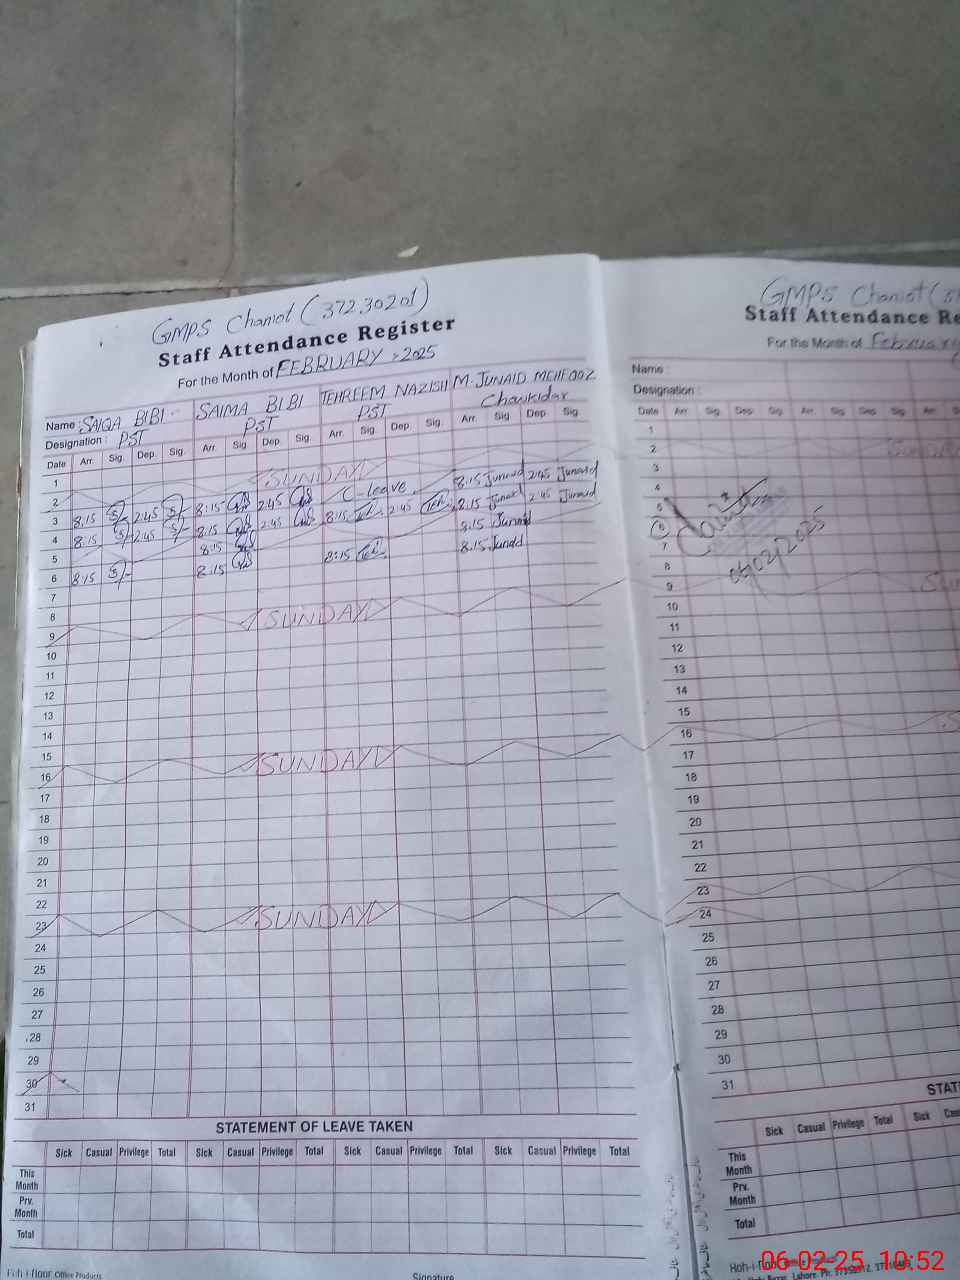 GMPS Chaniot (37230201)
Staff Attendance Register
For the Month of FEBRUARY 2025
Name : SAIQA BIBI SAIMA BIBI TEHREEM NAZISH M. JUNAID MEHFOOZ
Designation : PST PST PST Chowkidar
Date Arr. Sig. Dep. Sig. Arr. Sig. Dep. Sig. Arr. Sig. Dep. Sig. Arr. Sig. Dep. Sig.
1
2 SUNDAY
3 8:15 2:45 8:15 2:45 C-leave 8:15 Junaid 2:45 Junaid
4 8:15 2:45 8:15 2:45 8:15 2:45 8:15 Junaid 2:45 Junaid
5 8:15 8:15 Junaid
6 8:15 8:15 8:15 8:15 Junaid
7
8
9 SUNDAY
10
11
12
13
14
15
16 SUNDAY
17
18
19
20
21
22
23 SUNDAY
24
25
26
27
28
29
30
31
STATEMENT OF LEAVE TAKEN
Sick Casual Privilege Total Sick Casual Privilege Total Sick Casual Privilege Total Sick Casual Privilege Total
This Month
Prv. Month
Total
Office Products
Signature
GMPS Chaniot
Staff Attendance Re
For the Month of February
Name :
Designation :
Date Arr. Sig. Dep. Sig. Arr. Sig. Dep. Sig. Arr.
1
2
3
4
5
6
7
06/02/2025
8
9
10
11
12
13
14
15
16
17
18
19
20
21
22
23
24
25
26
27
28
29
30
31
STAT
Sick Casual Privilege Total Sick
This Month
Prv. Month
Total
06-02-25 10:52